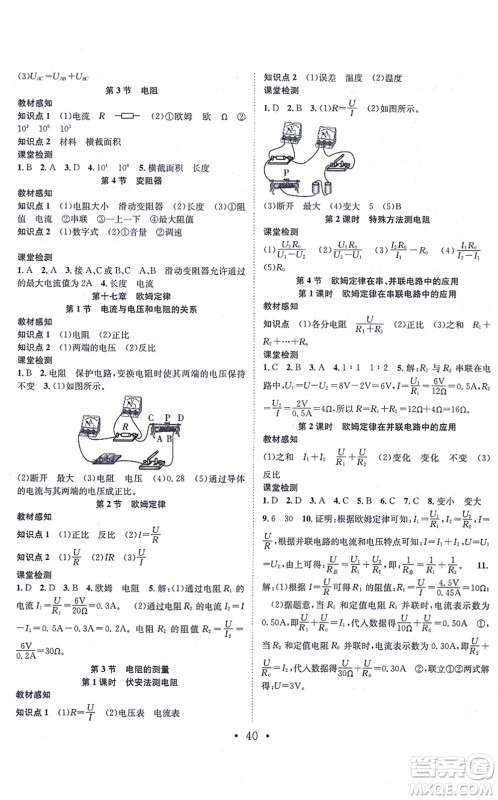 (3)U_AC=U_AB+U_BC
第3节 电阻
教材感知
知识点1 (1)电流 R (2)①欧姆 欧 Ω ②
10³ 10⁶ 10³
知识点2 材料 横截面积
课堂检测
1.B 2.A 3.D 4.C 5.横截面积 长度
第4节 变阻器
教材感知
知识点1 (1)电阻大小 滑动变阻器 (2)长度
电阻 (3)②串联 ③一上一下 ④最大阻值
知识点2 (1)数字式 (2)①音量 ②调速
课堂检测
1.A 2.A 3.B 4.接A、C处 滑动变阻器允许通过
的最大电流为0.5A 5.17Ω
第十七章 欧姆定律
第1节 电流与电压和电阻的关系
教材感知
知识点1 (1)电阻 (2)正比
知识点2 (1)两端的电压 (2)反比
课堂检测
1.D 2.电阻 保护电路,变换电阻时使两端的电压保持
不变 3.(1)如图所示。
C P D
A B
(2)断开 最大 (3)电阻 (4)0.28 (5)通过导体
的电流与其两端的电压成正比。
第2节 欧姆定律
教材感知
知识点1 (1)正比 反比 (2)I=U/R
知识点2 (1)U/I (2)IR (3)U/R
课堂检测
1.C 2.D 3.A 4.欧姆 5.解:通过电阻R₁的
电流I₁=U/R₁=6V/20Ω=0.3A,通过电阻R₂的电流I₂=
I-I₁=0.5A-0.3A=0.2A,电阻R₂的阻值R₂=U/I₂=
6V/0.2A=30Ω。
第3节 电阻的测量
第1课时 伏安法测电阻
教材感知
知识点1 (1)R=U/I (2)电压表 电流表
知识点2 (1)误差 温度 (2)温度
课堂检测
1.D 2.C 3.(1)R=U/I (2)如图所示。
(3)断开 最大 (4)变大 5 (5)B
第2课时 特殊方法测电阻
课堂检测
(1)U₂R₀/(U₁-U₂) (2)I₂R₀/(I₁-I₂) (3)U₁R₀/(U-U₁) (4)I₂R₀/(I₁-I₂)
第4节 欧姆定律在串、并联电路中的应用
第1课时 欧姆定律在串联电路中的应用
教材感知
(1)各部分电阻 U/(R₁+R₂) (2)R₁+R₂+…+Rₙ 变大
课堂检测
1.B 2.A 3.A 4.1∶1 1∶2 5.解:R₁与R₂串联在电
路中,U₁=U-U₂=8V-2V=6V,I=U₁/R₁=6V/12Ω=0.5A,
R₂=U₂/I=2V/0.5A=4Ω,R=R₁+R₂=12Ω+4Ω=16Ω。
第2课时 欧姆定律在并联电路中的应用
教材感知
(1)之和 U/R₁+U/R₂ (2)不变 变小 变大 不变 (3)
反比
课堂检测
1.D 2.D 3.A 4.D 5.B 6.C 7.C 8.变小 变大
9.6 30 10.证明:根据欧姆定律可得I=U/R,I₁=U₁/R₁,I₂=U₂/R₂,
根据并联电路的电流和电压特点可知I=I₁+I₂,U=U₁
=U₂,所以U/R并=U/R₁+U/R₂,即1/R并=1/R₁+1/R₂。 11.
解:(1)根据欧姆定律可得,R₁=U/I₁=4.5V/0.45A=10Ω。
(2)据题意,当电阻R₁与定值电阻R₀并联时,电流表示数
为0.75A,可得I=U/R₁+U/R₀,代入数据得0.75A=U/10Ω+U/R₀
①,当电阻R₂与定值电阻R₀并联时,电流表示数为
0.6A,可得I'=U/R₂+U/R₀,代入数据得0.6A=U/20Ω+U/R₀
②,联立①②两式得U=3V。
• 40 •
作业帮